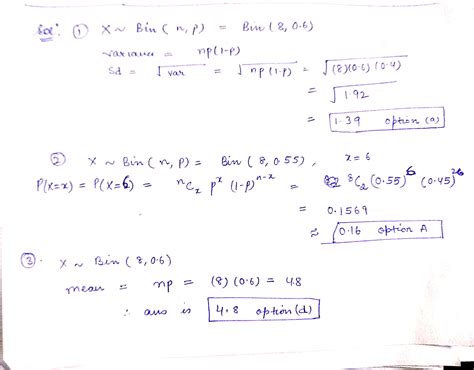 Sol: ① X ~ Bin (n, p) = Bin (8, 0.6)
variance = np(1-p)
Sd = √var = √np(1-p) = √(8)(0.6)(0.4)
= √1.92
= 1.39 option (a)
② X ~ Bin(n, p) = Bin (8, 0.55), x = 6
P(X=x) = P(X=6) = ⁿCₓ pˣ (1-p)ⁿ⁻ˣ = ⁸C₂ (0.55)⁶ (0.45)²
= 0.1569
≈ 0.16 option A
③. X ~ Bin (8, 0.6)
mean = np = (8) (0.6) = 4.8
∴ ans is 4.8 option (d)